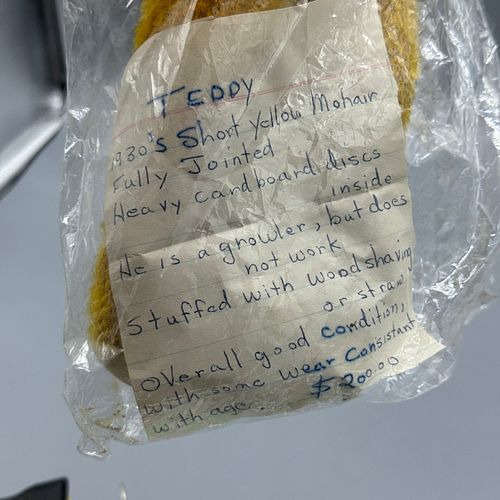 TEDDY
1930's Short Yellow Mohair
Fully Jointed
Heavy cardboard discs
inside
He is a growler, but does
not work
Stuffed with wood shaving
or straw
Overall good condition,
with some wear Consistant
with age. $200.00